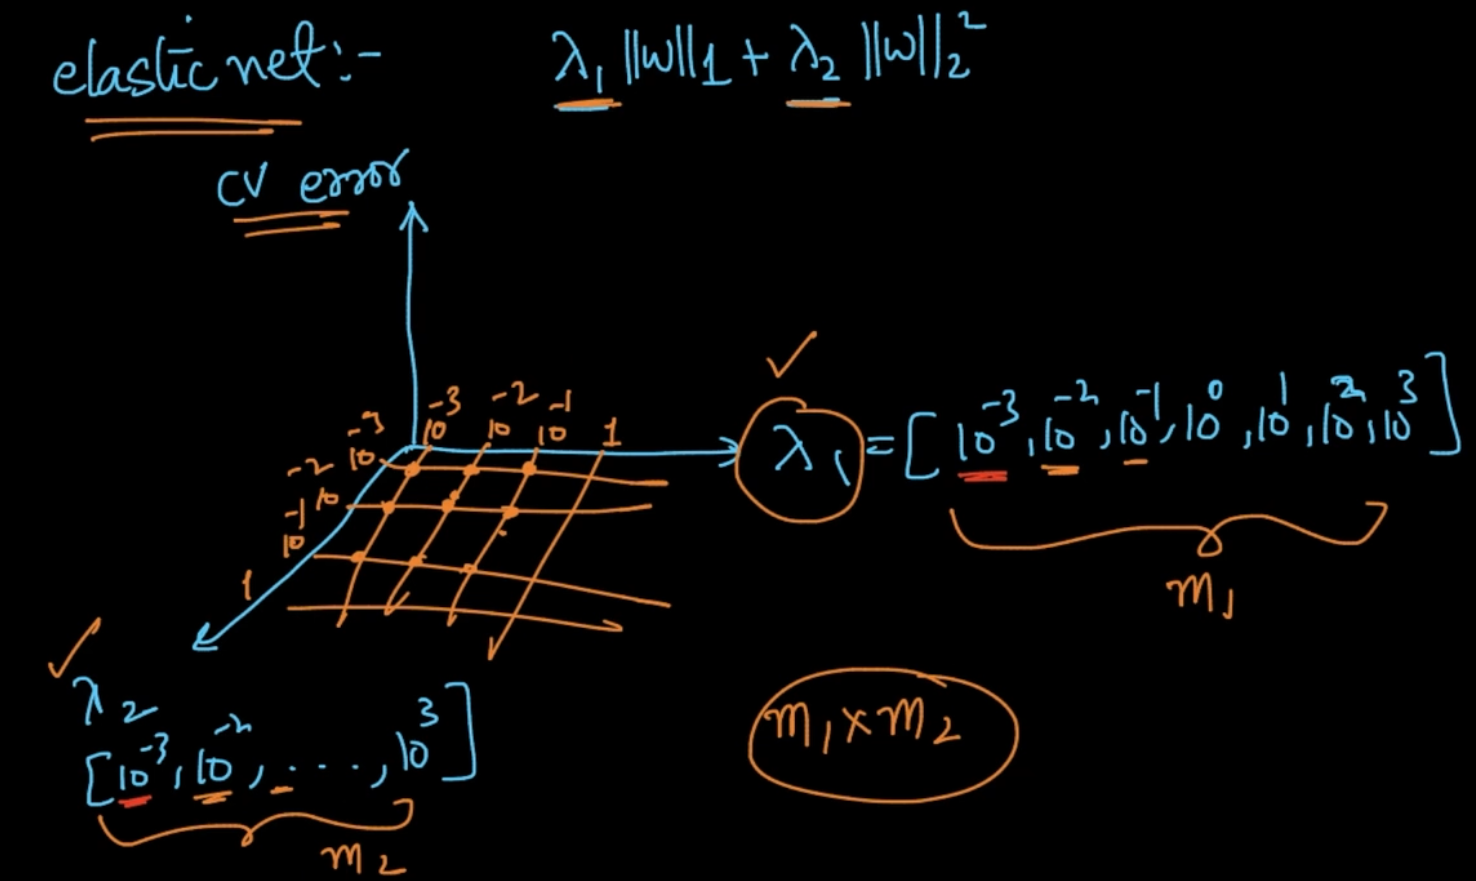 elastic net:- λ₁ ||w||₁ + λ₂ ||w||₂²
CV error
10⁻³ 10⁻² 10⁻¹ 1
10⁻³
10⁻²
10⁻¹
1
λ₁ = [10⁻³, 10⁻², 10⁻¹, 10⁰, 10¹, 10², 10³]
m₁
λ₂
[10⁻³, 10⁻², ...., 10³]
m₂
m₁ × m₂